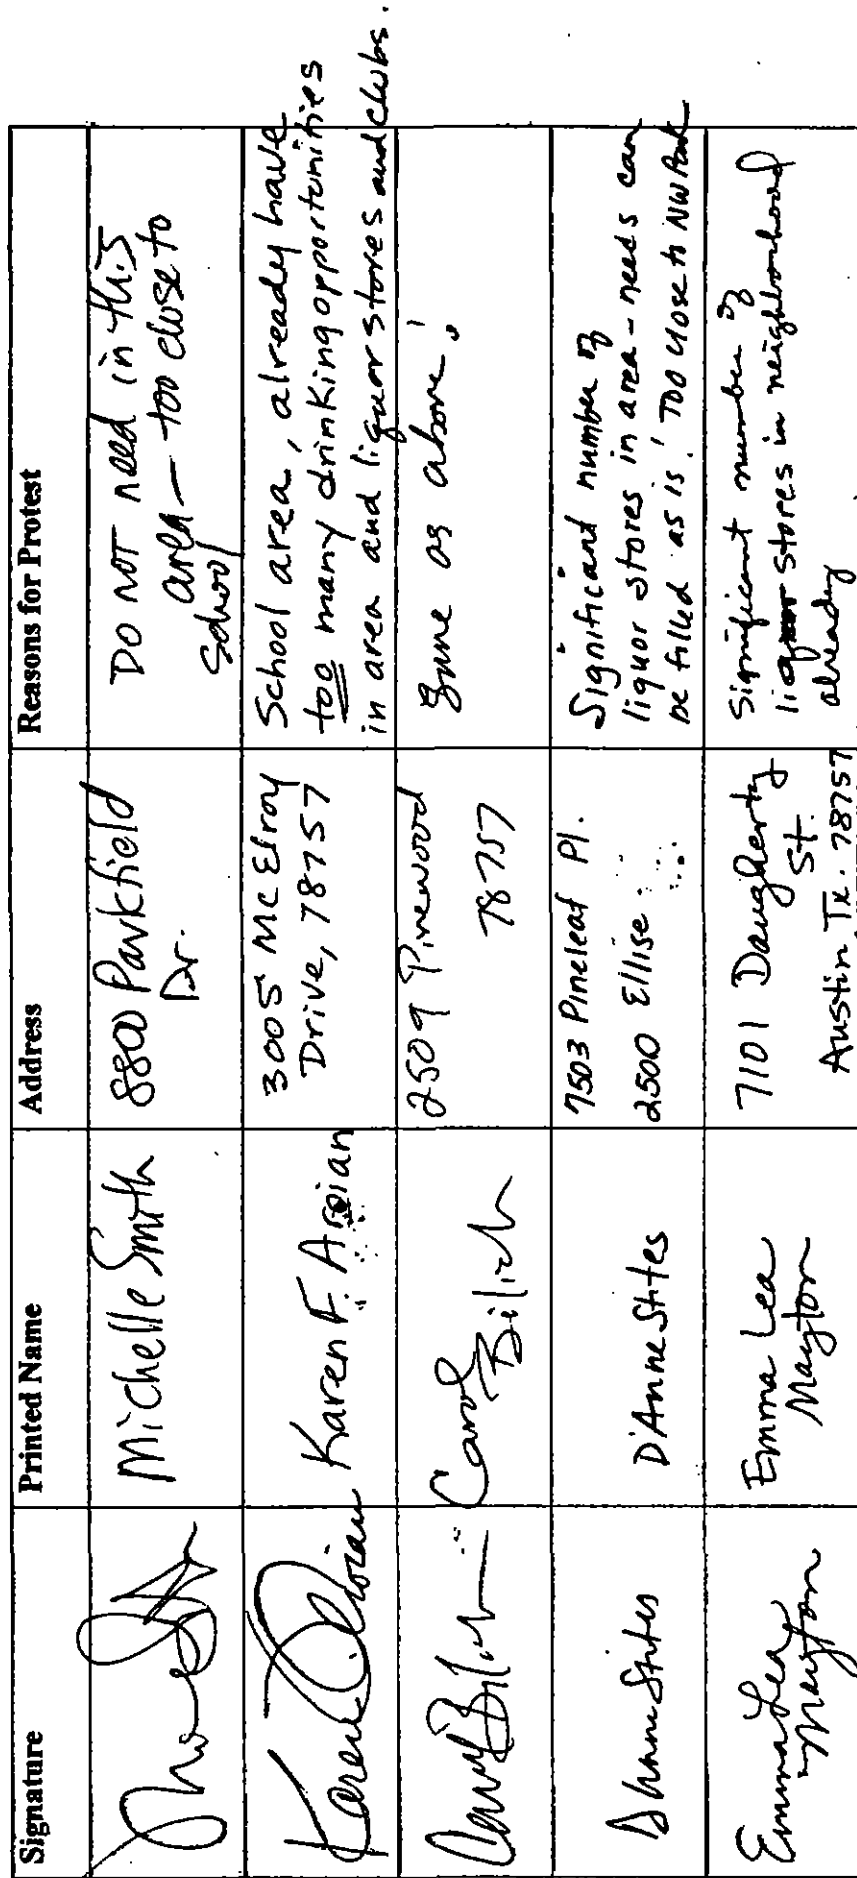 Signature Printed Name Address Reasons for Protest
Michelle Smith
8800 Parkfield
Dr.
DO NOT need in this
area — too close to
School
Karen Aroian
Karen F. Aroian
3005 McElroy
Drive, 78757
School area, already have
too many drinking opportunities
in area and liquor stores and clubs.
Carol Bilich
Carol
Bilich
2509 Pinewood
78757
Same as above!
D'Anne Stites
D'Anne Stites
7503 Pineleaf Pl.
2500 Ellise
Significant number of
liquor stores in area - needs can
be filled as is! Too close to NW Park
Emma Lea
Mayton
Emma Lea
Mayton
7101 Daugherty
St.
Austin Tx. 78757
Significant number of
liquor stores in neighborhood
already